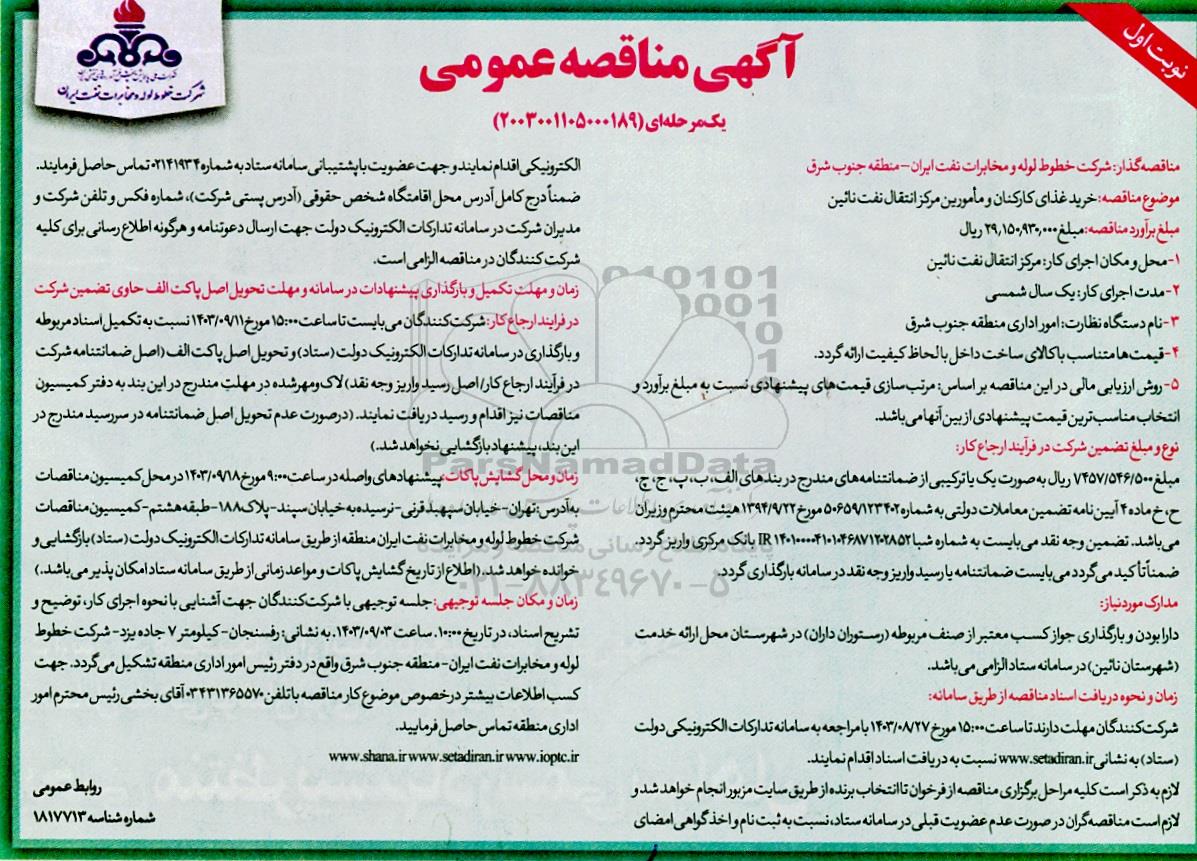 نوبت اول
شرکت خطوط لوله و مخابرات نفت ایران
آگهی مناقصه عمومی
یک‌مرحله‌ای (۲۰۰۳۰۰۱۱۰۵۰۰۰۱۸۹)
مناقصه‌گذار: شرکت خطوط لوله و مخابرات نفت ایران – منطقه جنوب شرق
موضوع مناقصه: خرید غذای کارکنان و مأمورین مرکز انتقال نفت نائین
مبلغ برآورد مناقصه: مبلغ ۲۹,۱۵۰,۹۳۰,۰۰۰ ریال
۱- محل و مکان اجرای کار: مرکز انتقال نفت نائین
۲- مدت اجرای کار: یک سال شمسی
۳- نام دستگاه نظارت: امور اداری منطقه جنوب شرق
۴- قیمت‌ها متناسب با کالای ساخت داخل با لحاظ کیفیت ارائه گردد.
۵- روش ارزیابی مالی در این مناقصه بر اساس: مرتب‌سازی قیمت‌های پیشنهادی نسبت به مبلغ برآورد و
انتخاب مناسب‌ترین قیمت پیشنهادی از بین آنها می‌باشد.
نوع و مبلغ تضمین شرکت در فرآیند ارجاع کار:
مبلغ ۷۴۵۷/۵۴۶/۵۰۰ ریال به صورت یک یا ترکیبی از ضمانتنامه‌های مندرج در بندهای الف، ب، پ، ج، چ،
ح، خ ماده ۴ آیین‌نامه تضمین معاملات دولتی به شماره ۵۰۶۵۹/۱۲۳۴۰۲ مورخ ۱۳۹۴/۹/۲۲ هیئت محترم وزیران
می‌باشد. تضمین وجه نقد می‌بایست به شماره شبا IR ۱۴۰۱۰۰۰۰۴۱۰۱۰۴۶۸۷۱۲۰۲۸۵۲ بانک مرکزی واریز گردد.
ضمناً تأکید می‌گردد می‌بایست ضمانتنامه یا رسید واریز وجه نقد در سامانه بارگذاری گردد.
مدارک موردنیاز:
دارا بودن و بارگذاری جواز کسب معتبر از صنف مربوطه (رستوران داران) در شهرستان محل ارائه خدمت
(شهرستان نائین) در سامانه ستاد الزامی می‌باشد.
زمان و نحوه دریافت اسناد مناقصه از طریق سامانه:
شرکت‌کنندگان مهلت دارند تا ساعت ۱۵:۰۰ مورخ ۱۴۰۳/۰۸/۲۷ با مراجعه به سامانه تدارکات الکترونیکی دولت
(ستاد) به نشانی www.setadiran.ir نسبت به دریافت اسناد اقدام نمایند.
لازم به ذکر است کلیه مراحل برگزاری مناقصه از فرخوان تا انتخاب برنده از طریق سایت مزبور انجام خواهد شد و
لازم است مناقصه‌گران در صورت عدم عضویت قبلی در سامانه ستاد، نسبت به ثبت نام و اخذ گواهی امضای
الکترونیکی اقدام نمایند و جهت عضویت با پشتیبانی سامانه ستاد به شماره ۰۲۱۴۱۹۳۴ تماس حاصل فرمایند.
ضمناً درج کامل آدرس محل اقامتگاه شخص حقوقی (آدرس پستی شرکت)، شماره فکس و تلفن شرکت و
مدیران شرکت در سامانه تدارکات الکترونیک دولت جهت ارسال دعوتنامه و هرگونه اطلاع رسانی برای کلیه
شرکت کنندگان در مناقصه الزامی است.
زمان و مهلت تکمیل و بارگذاری پیشنهادات در سامانه و مهلت تحویل اصل پاکت الف حاوی تضمین شرکت
در فرایند ارجاع کار: شرکت‌کنندگان می‌بایست تا ساعت ۱۵:۰۰ مورخ ۱۴۰۳/۰۹/۱۱ نسبت به تکمیل اسناد مربوطه
و بارگذاری در سامانه تدارکات الکترونیک دولت (ستاد) و تحویل اصل پاکت الف (اصل ضمانتنامه شرکت
در فرآیند ارجاع کار/ اصل رسید واریز وجه نقد) لاک و مهر شده در مهلت مندرج در این بند به دفتر کمیسیون
مناقصات نیز اقدام و رسید دریافت نمایند. (در صورت عدم تحویل اصل ضمانتنامه در سررسید مندرج در
این بند، پیشنهاد بازگشایی نخواهد شد.)
زمان و محل گشایش پاکات: پیشنهادهای واصله در ساعت ۹:۰۰ مورخ ۱۴۰۳/۰۹/۱۸ در محل کمیسیون مناقصات
به آدرس: تهران- خیابان سپهبد قرنی- نرسیده به خیابان سپند- پلاک ۱۸۸- طبقه هشتم- کمیسیون مناقصات
شرکت خطوط لوله و مخابرات نفت ایران منطقه از طریق سامانه تدارکات الکترونیک دولت (ستاد) بازگشایی و
خوانده خواهد شد. (اطلاع از تاریخ گشایش پاکات و مواعد زمانی از طریق سامانه ستاد امکان پذیر می‌باشد.)
زمان و مکان جلسه توجیهی: جلسه توجیهی با شرکت‌کنندگان جهت آشنایی با نحوه اجرای کار، توضیح و
تشریح اسناد، در تاریخ ۱۰:۰۰. ساعت ۱۴۰۳/۰۹/۰۳. به نشانی: رفسنجان- کیلومتر ۷ جاده یزد- شرکت خطوط
لوله و مخابرات نفت ایران- منطقه جنوب شرق واقع در دفتر رئیس امور اداری منطقه تشکیل می‌گردد. جهت
کسب اطلاعات بیشتر در خصوص موضوع کار مناقصه با تلفن ۰۳۴۳۱۳۶۵۵۷۰ آقای بخشی رئیس محترم امور
اداری منطقه تماس حاصل فرمایید.
www.shana.ir www.setadiran.ir www.ioptc.ir
روابط عمومی
شماره شناسه ۱۸۱۷۷۱۳
ParsNamadData
پایگاه اطلاع رسانی مناقصه و مزایده
۰۲۱-۸۸۳۴۹۶۷۰-۵